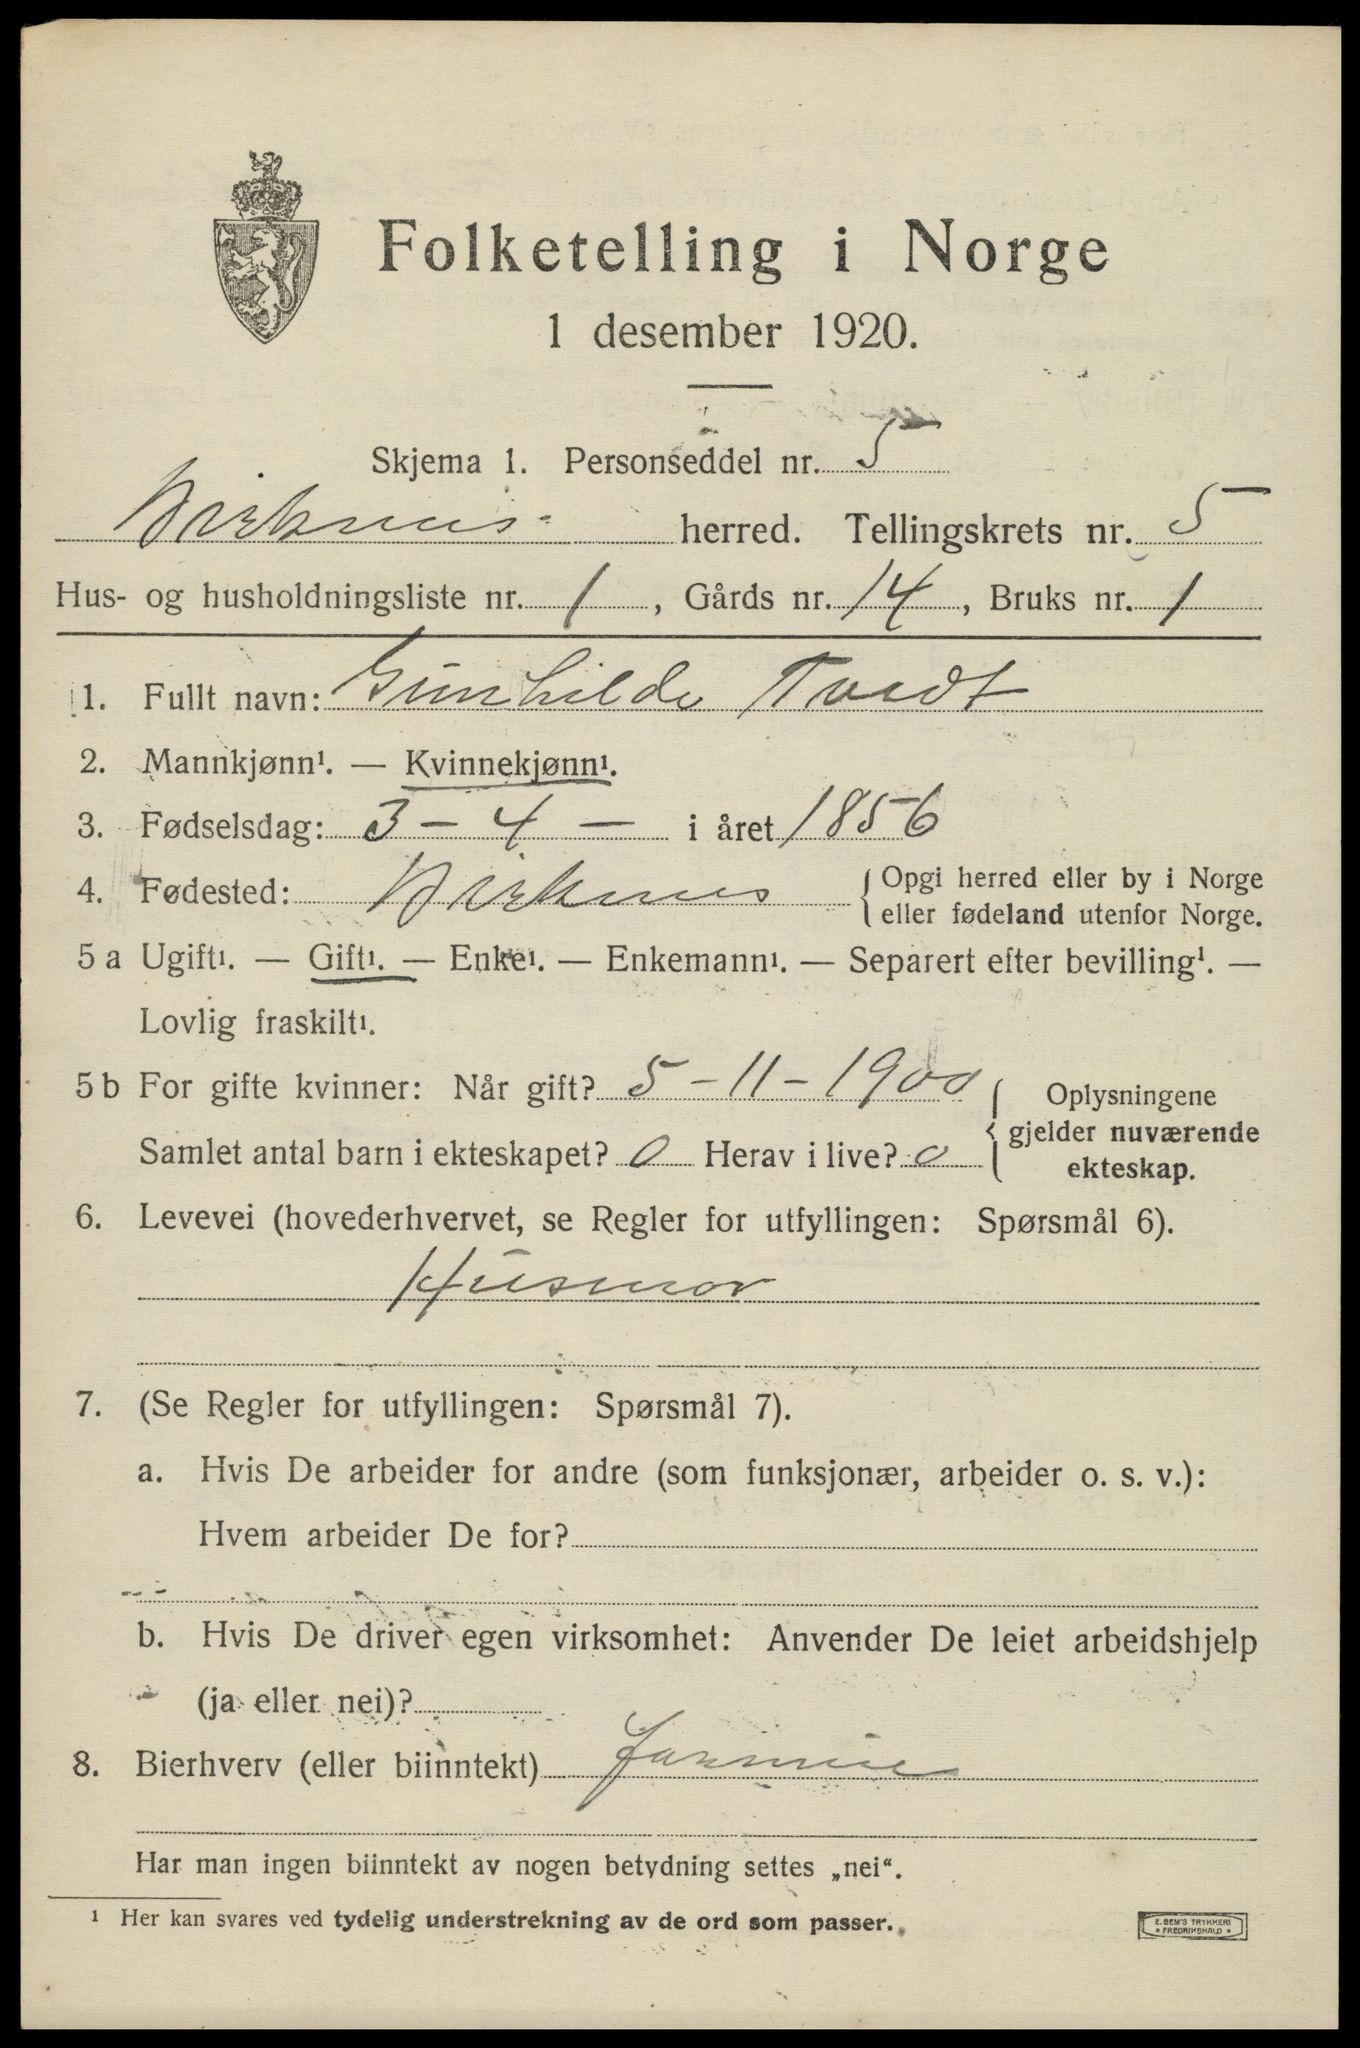 Folketelling i Norge
1 desember 1920.
Skjema 1. Personseddel nr. 5
Birkenes herred. Tellingskrets nr. 5
Hus- og husholdningsliste nr. 1, Gårds nr. 14, Bruks nr. 1
1. Fullt navn: Gunhilde Tvedt
2. Mannkjønn¹. — Kvinnekjønn¹.
3. Fødselsdag: 3 - 4 - i året 1856
4. Fødested: Birkenes { Opgi herred eller by i Norge
eller fødeland utenfor Norge.
5 a Ugift¹. — Gift¹. — Enke¹. — Enkemann¹. — Separert efter bevilling¹. —
Lovlig fraskilt¹.
5 b For gifte kvinner: Når gift? 5 - 11 - 1900
Samlet antal barn i ekteskapet? 0 Herav i live? 0
{ Oplysningene
gjelder nuværende
ekteskap.
6. Levevei (hovederhvervet, se Regler for utfyllingen: Spørsmål 6).
Husmor
7. (Se Regler for utfyllingen: Spørsmål 7).
a. Hvis De arbeider for andre (som funksjonær, arbeider o. s. v.):
Hvem arbeider De for?
b. Hvis De driver egen virksomhet: Anvender De leiet arbeidshjelp
(ja eller nei)?
8. Bierhverv (eller biinntekt)
Har man ingen biinntekt av nogen betydning settes „nei“.
¹ Her kan svares ved tydelig understrekning av de ord som passer.
E. SEM'S TRYKKERI
• FREDRIKSHALD •